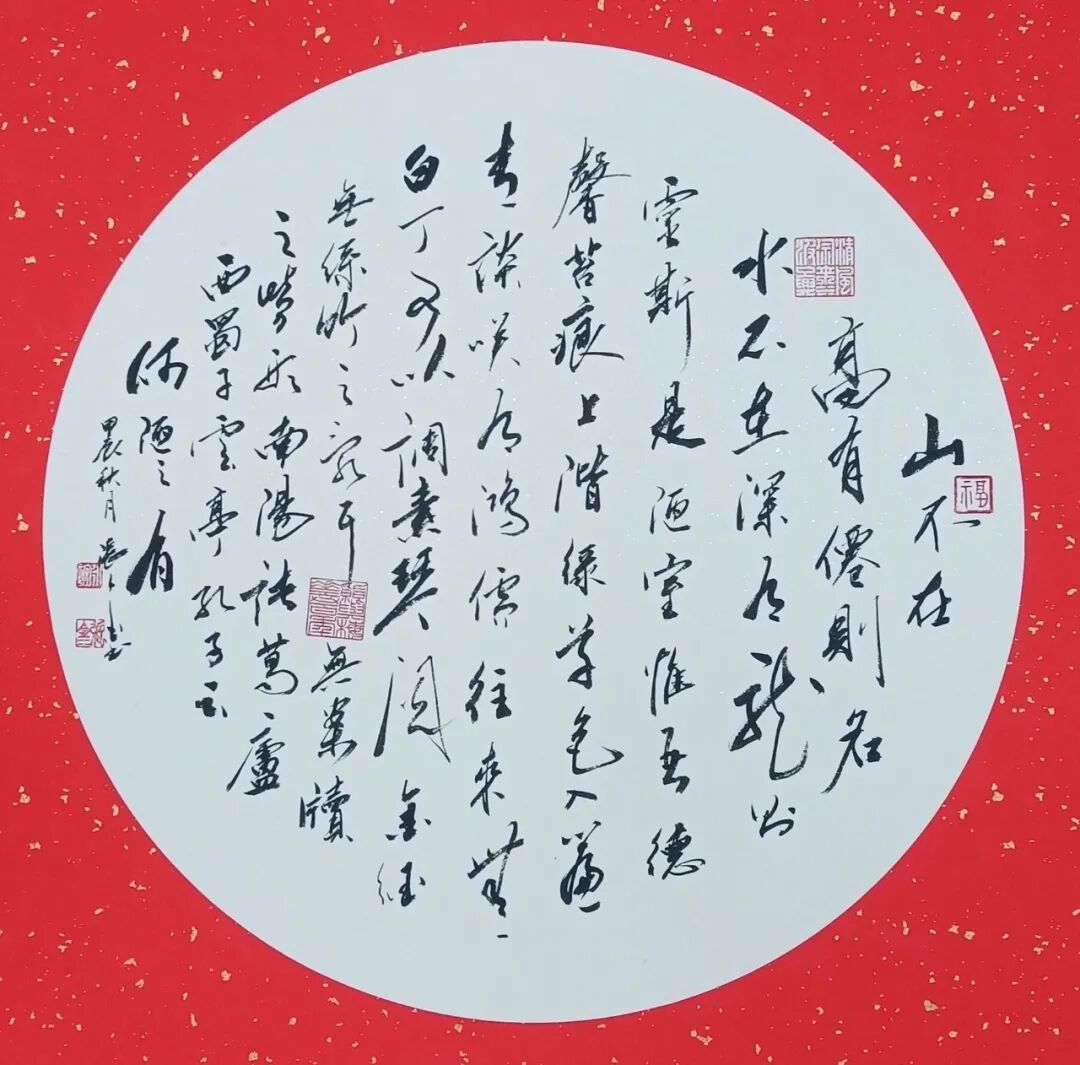 山不在
高有僊則名
水不在深有龍則
靈斯是陋室惟吾德
馨苔痕上階綠草色入簾
青談咲有鴻儒往來無
白丁可以調素琴閱金經
無絲竹之亂耳無案牘
之勞形南陽諸葛廬
西蜀子雲亭孔子云
何陋之有
甲辰秋月
福